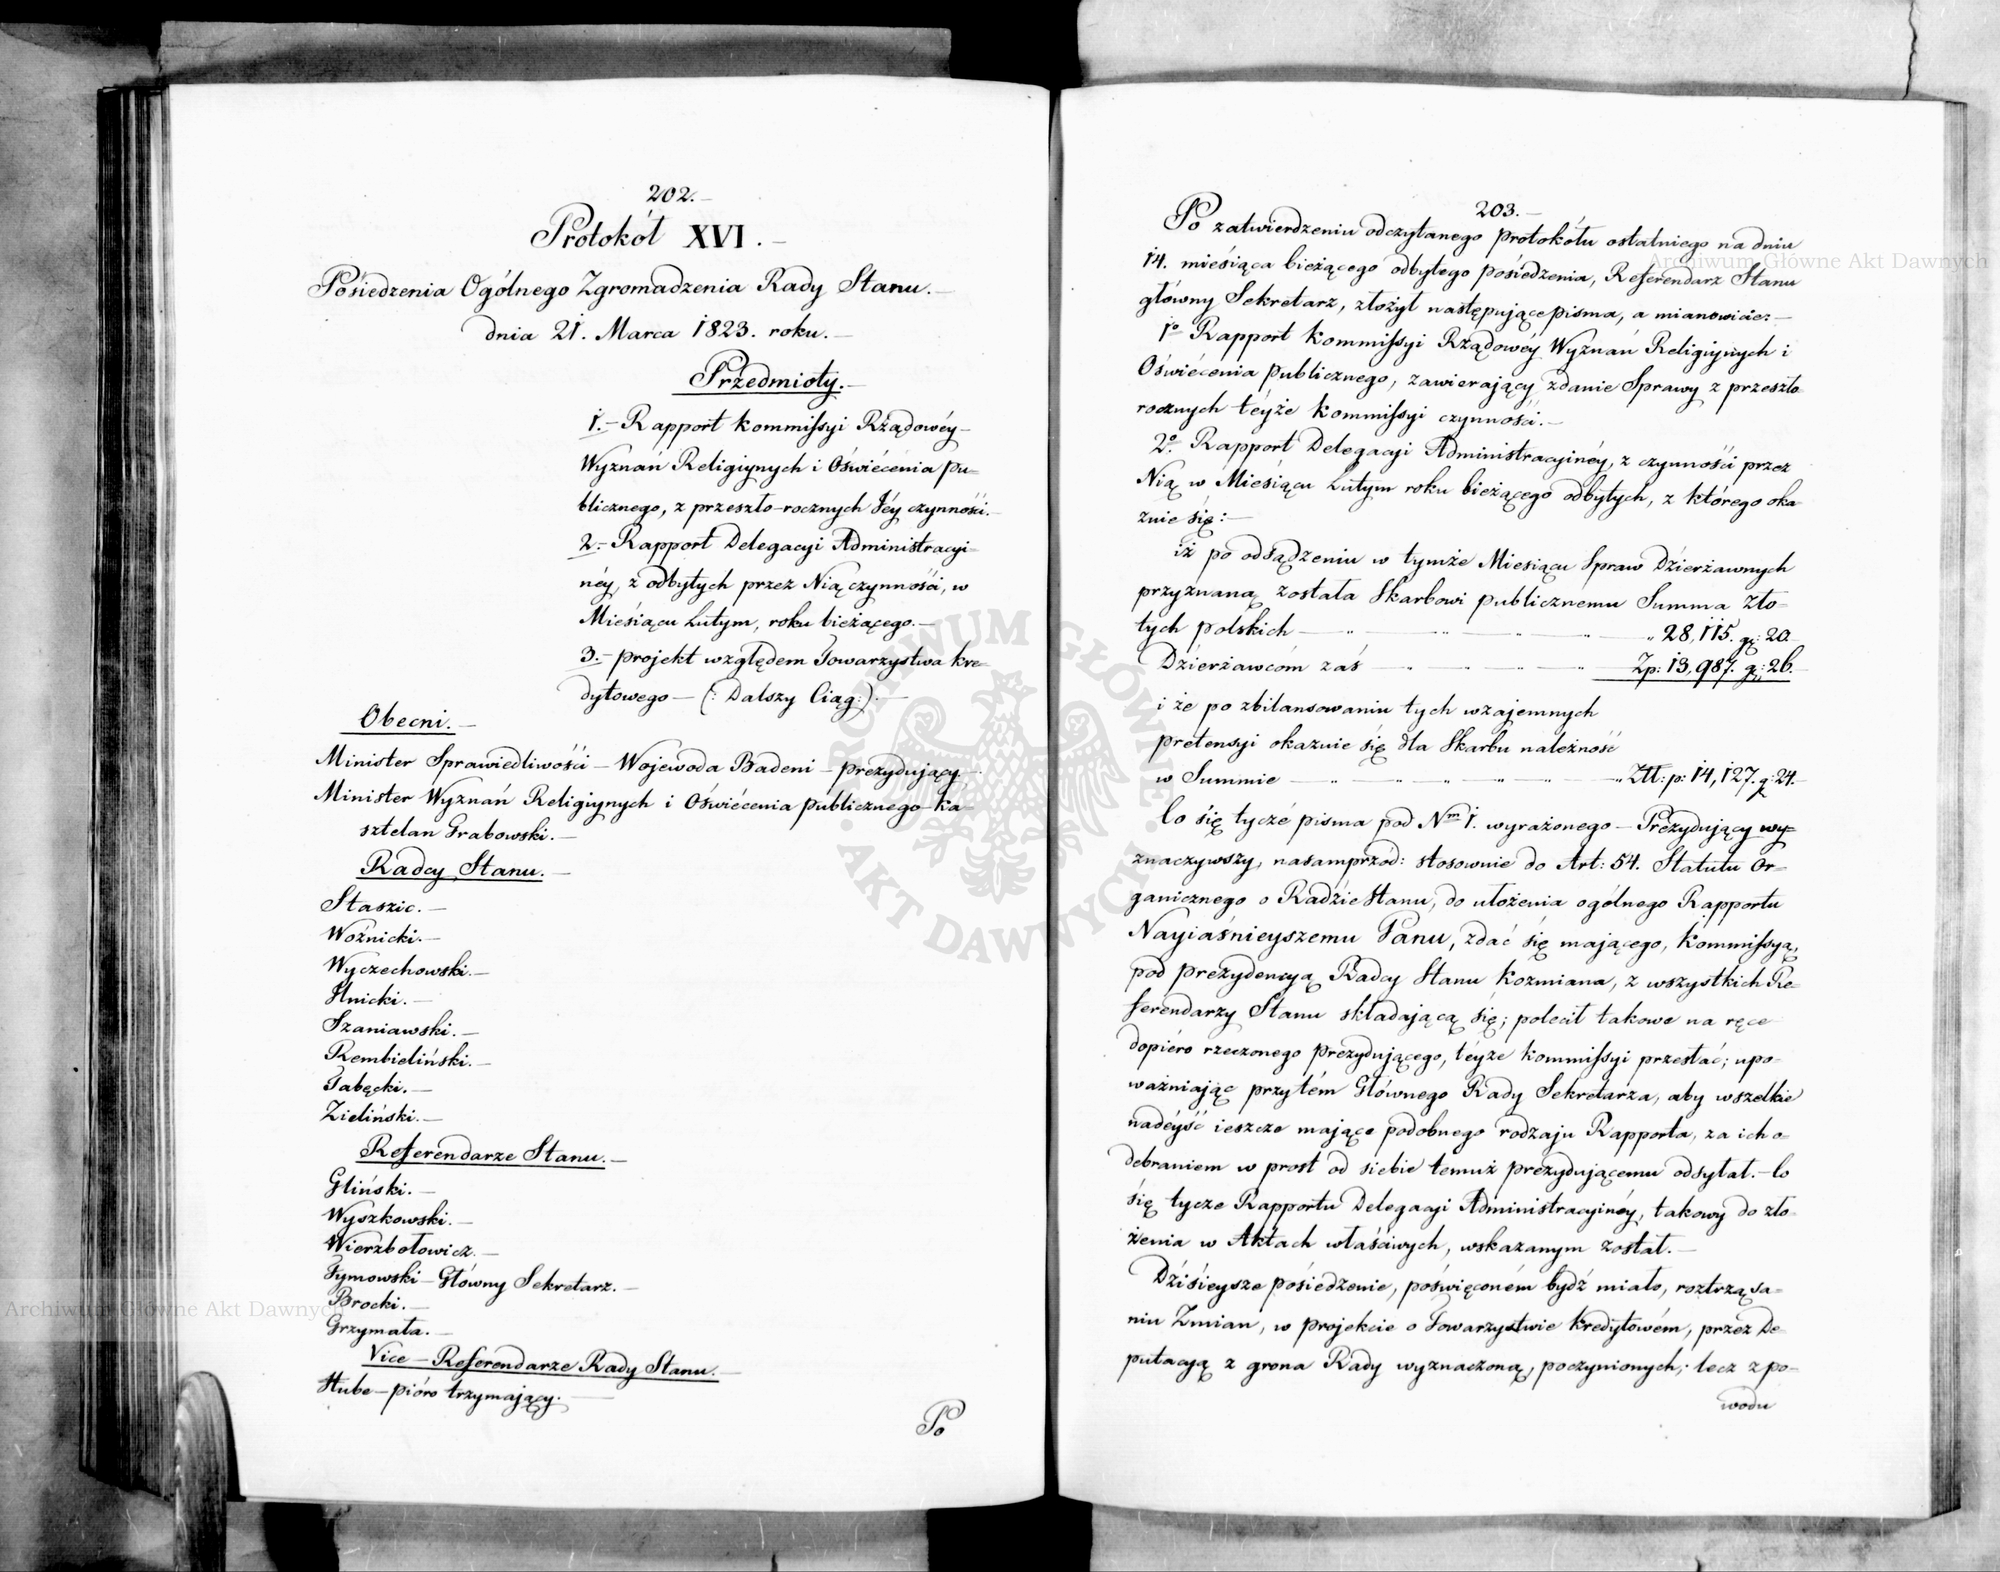 202.
Protokół XVI.
Posiedzenia Ogólnego Zgromadzenia Rady Stanu.
dnia 21. Marca 1823. roku.
Przedmioty.
1. Rapport Kommissyi Rządowéy
Wyznań Religiynych i Oświécenia pu-
blicznego, z przeszło-rocznych Jéy czynności.
2. Rapport Delegacyi Administracyi-
néy, z odbytych przez Nią czynności, w
Miesiącu Lutym, roku bieżącego.
3. projekt względem Towarzystwa kre-
dytowego – (: Dalszy Ciąg:)
Obecni.
Minister Sprawiedliwości – Wojewoda Badeni – prezydujący.
Minister Wyznań Religiynych i Oświécenia publicznego Ka-
sztelan Grabowski.
Radcy Stanu.
Staszic.
Woźnicki.
Wyczechowski.
Hnicki.
Szaniawski.
Rembieliński.
Tabęcki.
Zieliński.
Referendarze Stanu.
Gliński.
Wyszkowski.
Wierzbołowicz.
Tymowski – Główny Sekretarz.
Brocki.
Grzymała.
Vice – Referendarze Rady Stanu.
Hube – pióro trzymający.
Po
203.
Po zatwierdzeniu odczytanego protokółu ostatniego na dniu
14. miesiąca bieżącego odbytego posiedzenia, Referendarz Stanu
główny Sekretarz, złożył następujące pisma, a mianowicie:
1º Rapport Kommissyi Rządowéy Wyznań Religiynych i
Oświécenia publicznego, zawierający zdanie Sprawy z przeszło-
rocznych téyże Kommissyi czynności.
2º Rapport Delegacyi Administracyinéy, z czynności przez
Nią w Miesiącu Lutym roku bieżącego odbytych, z którego oka-
zuie się:
iż po odsądzeniu w tymże Miesiącu Spraw Dzierżawnych
przyznaną została Skarbowi publicznemu Summa Zło-
tych polskich „ 28,115. gr: 20.
Dzierżawcóm zaś Zp: 13,987. gr: 26.
i że po zbilansowaniu tych wzajemnych
pretensyi okazuie się dla Skarbu należność
w Summie „ Złł: p: 14,127. gr: 24.
Co się tycze pisma pod Nm 1. wyrażonego – Prezydujący wy-
znaczywszy, nasamprzód: stosownie do Art: 54. Statutu Or-
ganicznego o Radzie Stanu, do ułożenia ogólnego Rapportu
Nayiaśnieyszemu Panu, zdać się mającego, Kommissyą,
pod prezydencyą Radcy Stanu Koźmiana, z wszystkich Re-
ferendarzy Stanu składającą się; polecił takowe na ręce
dopiéro rzeczonego prezydującego, téyże Kommissyi przesłać; upo-
ważniając przytém Głównego Rady Sekretarza, aby wszelkie
nadéyść ieszcze mające podobnego rodzaju Rapporta, za ich o-
debraniem w prost od siebie temuż prezydującemu odsyłał. – Co
się tycze Rapportu Delegacyi Administracyinéy, takowy do zło-
żenia w Aktach właściwych, wskazanym został.
Dzisieysze posiedzenie, poświęconém bydź miało, roztrząsa-
niu Zmian, w projekcie o Towarzystwie Kredytowém, przez De-
putacyą z grona Rady wyznaczoną, poczynionych; lecz z po-
wodu
Archiwum Główne Akt Dawnych
Archiwum Główne Akt Dawnych
ARCHIWUM GŁÓWNE AKT DAWNYCH